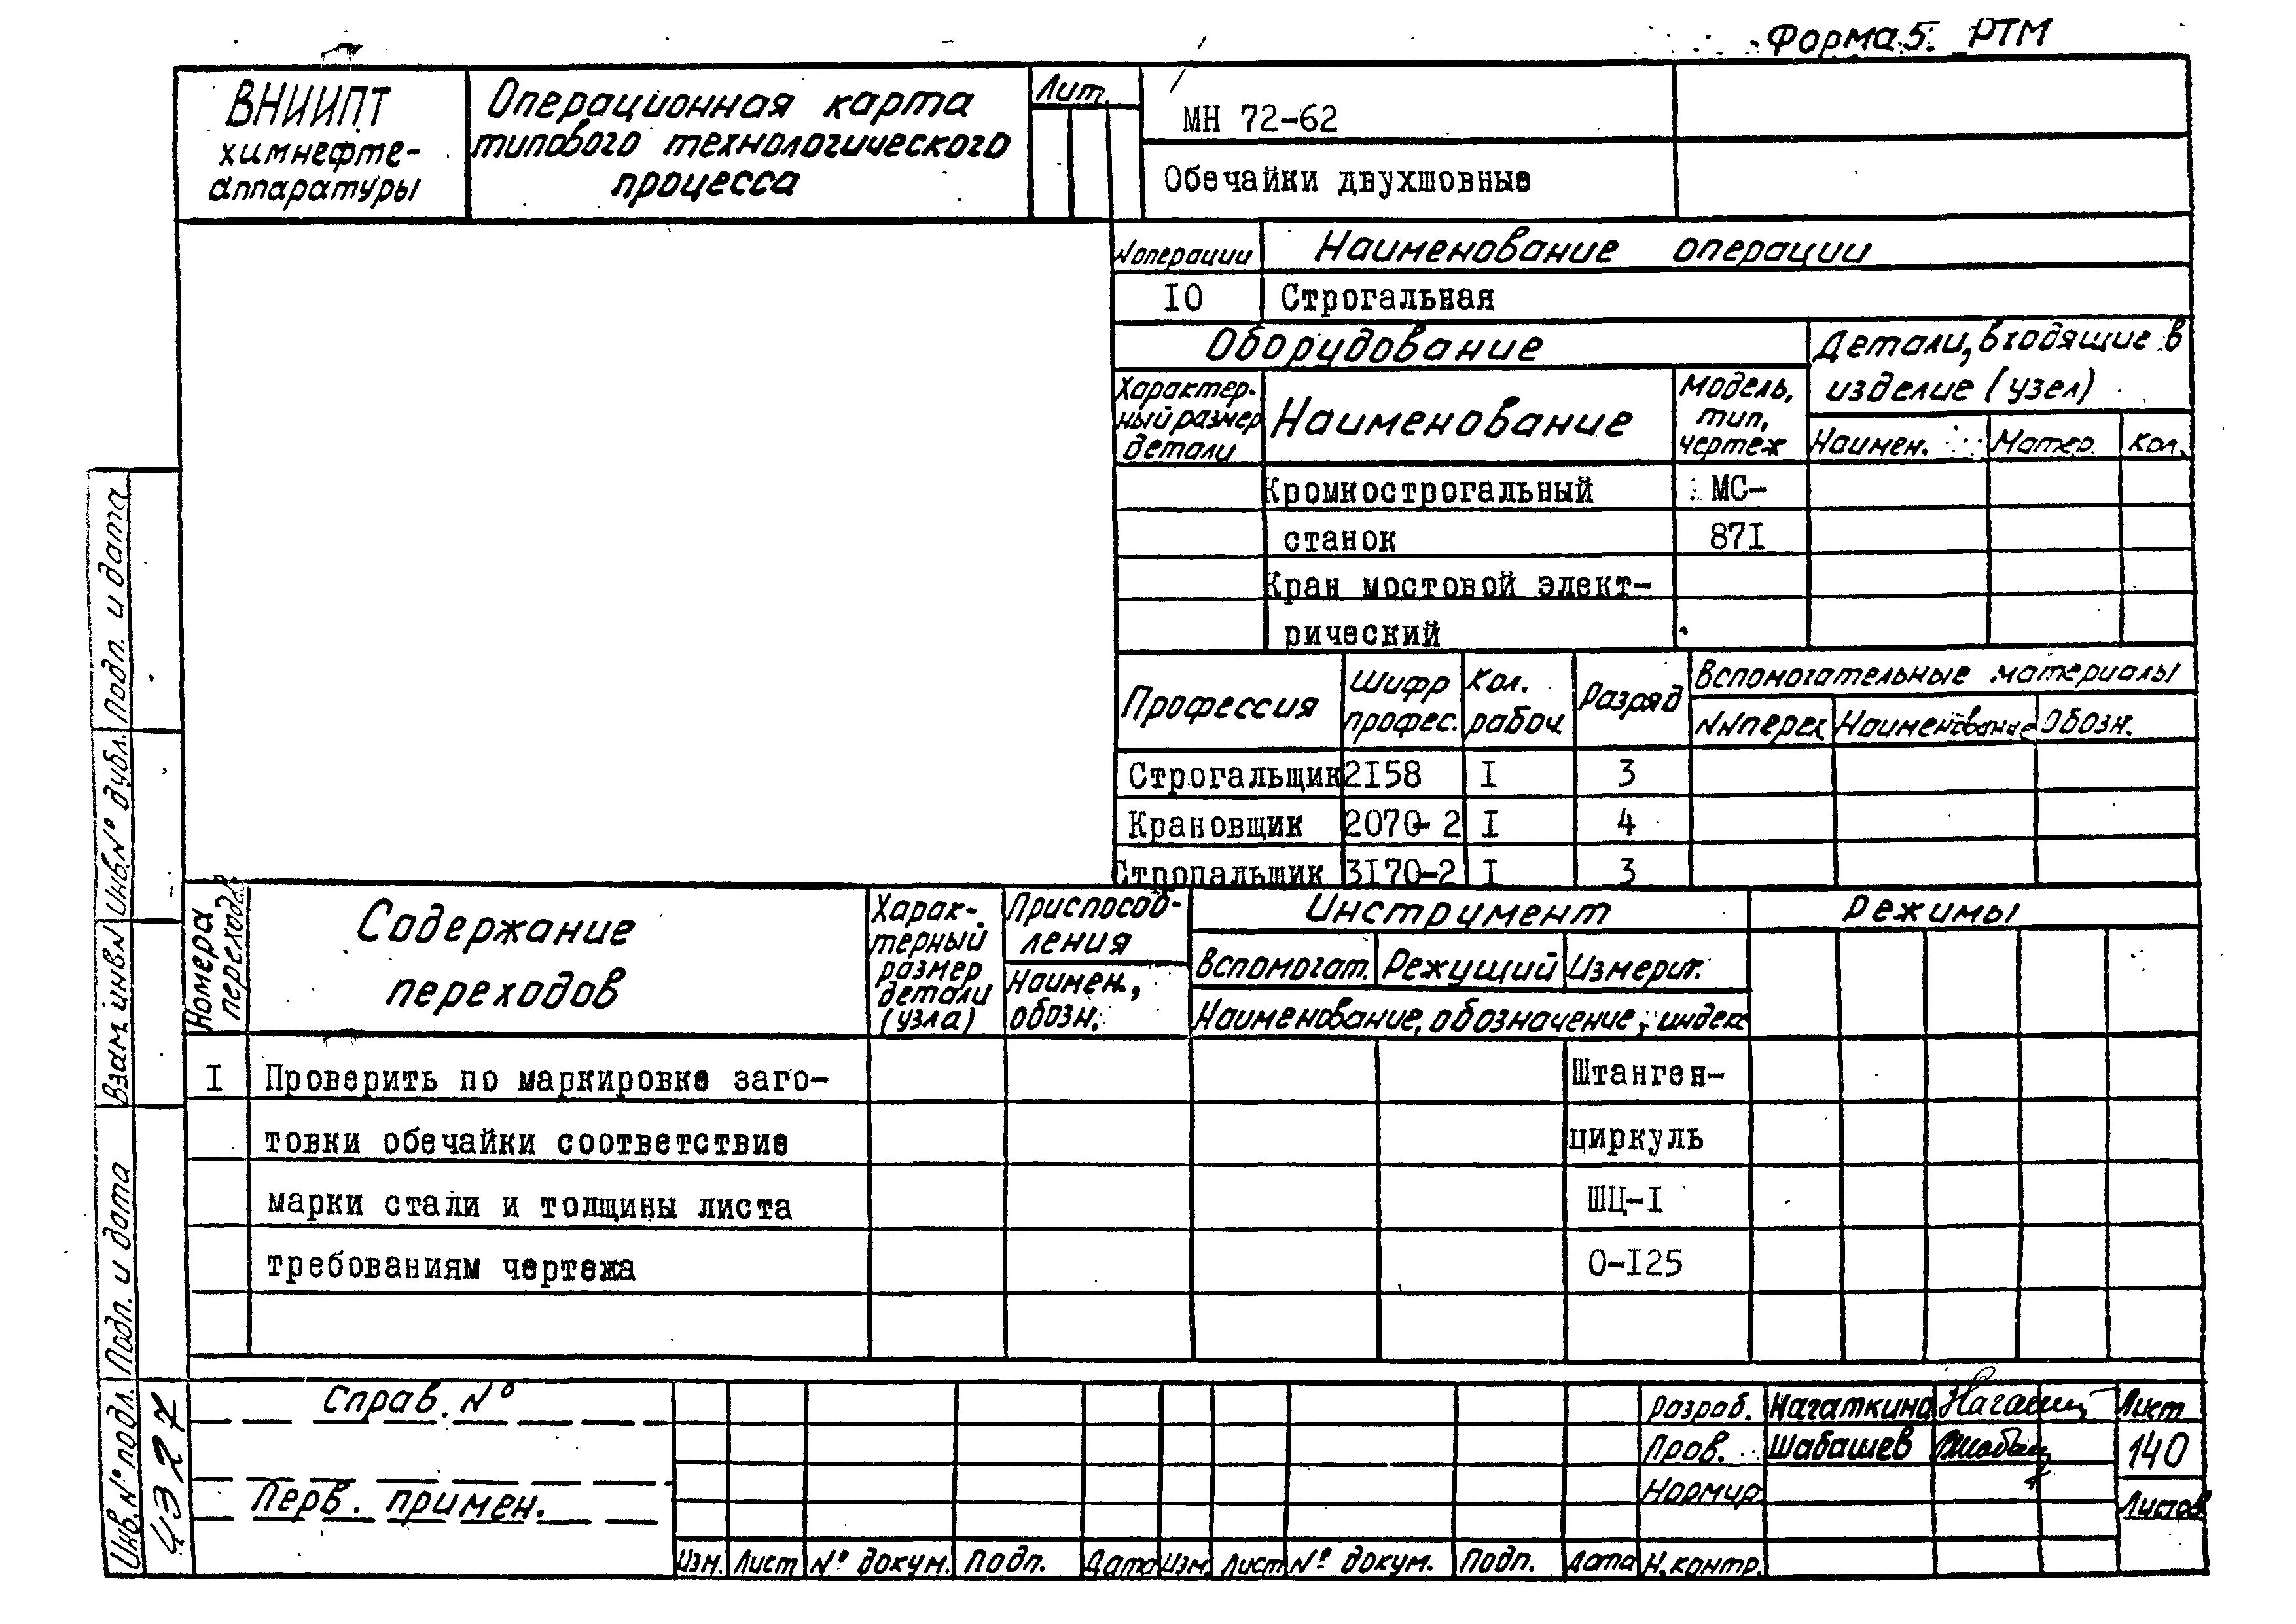 Форма 5. РТМ
ВНИИПТ
химнефте-
аппаратуры
Операционная карта
типового технологического
процесса
Лит.
МН 72-62
Обечайки двухшовные
№ операции
Наименование операции
I0
Строгальная
Оборудование
Детали, входящие в
изделие (узел)
Характер-
ный размер
детали
Наименование
Модель,
тип,
чертеж
Наимен.
Матер.
Кол.
Кромкострогальный
МС-
станок
87I
Кран мостовой элект-
рический
Профессия
Шифр
профес.
Кол.
рабоч.
Разряд
Вспомогательные материалы
№№ перех
Наименование
Обозн.
Строгальщик 2I58 I 3
Крановщик 2070-2 I 4
Стропальщик 3I70-2 I 3
Номера
переходов
Содержание
переходов
Харак-
терный
размер
детали
(узла)
Приспособ-
ления
Наимен.,
обозн.
Инструмент
Вспомогат. Режущий Измерит.
Наименование, обозначение, индекс
Режимы
I Проверить по маркировке заго-
Штанген-
товки обечайки соответствие
циркуль
марки стали и толщины листа
ШЦ-I
требованиям чертежа
0-I25
Подп. и дата
Инв. № дубл.
Взам. инв. №
Подп. и дата
Инв. № подл.
4327
Справ. №
Перв. примен.
Изм. Лист № докум. Подп. Дата Изм. Лист № докум. Подп. Дата
Разраб. Нагаткина
Пров. Шабашев
Нормир.
Н.контр.
Лист
140
Листов